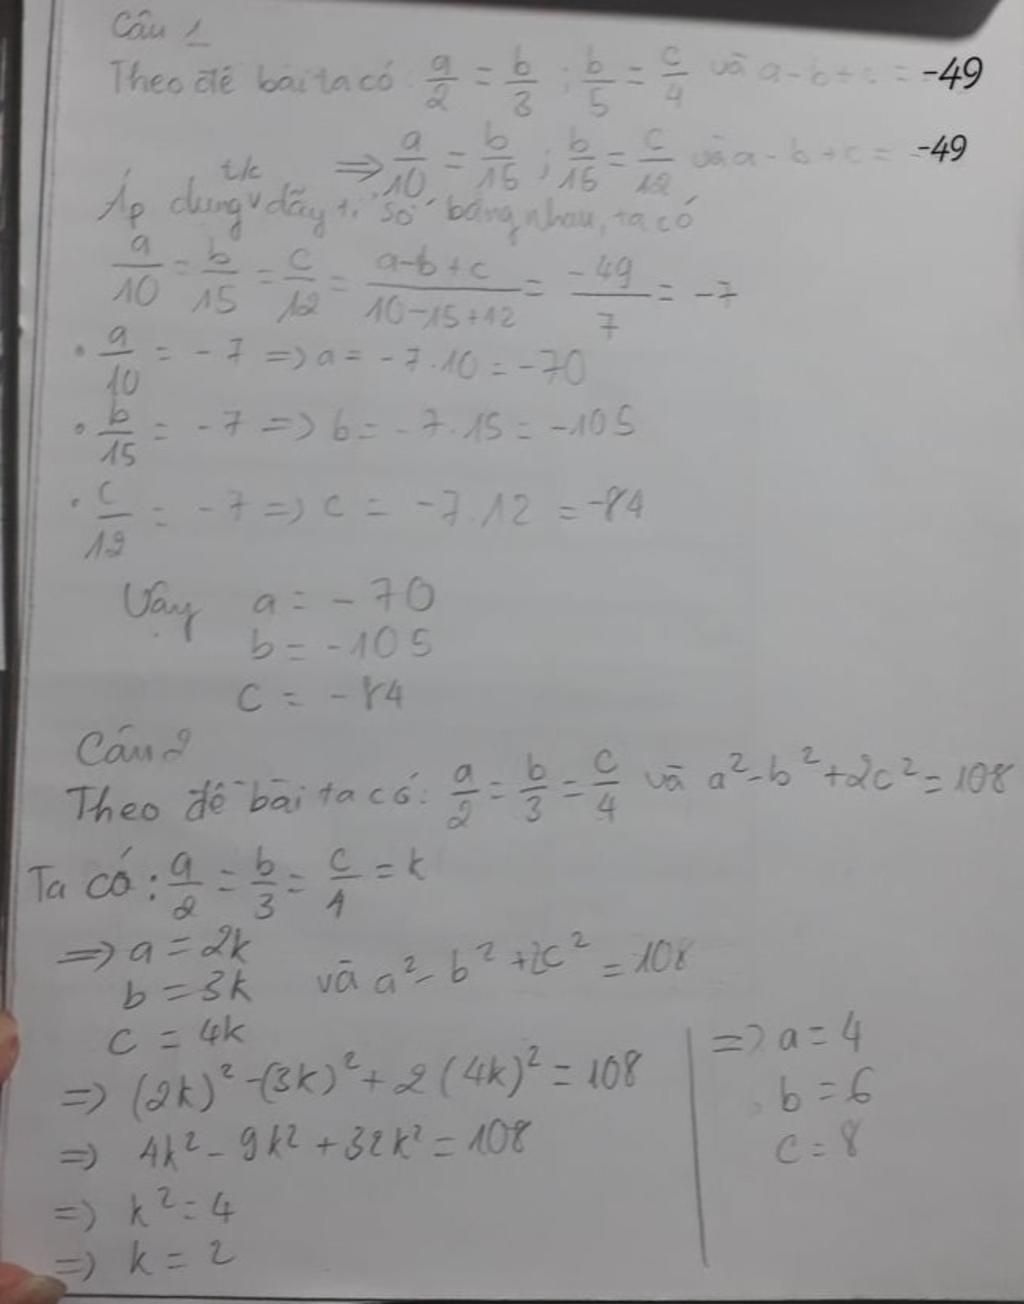 Câu 1
Theo đề bài ta có: a/2 = b/3 ; b/5 = c/4 và a-b+c = -49
=> a/10 = b/15 ; b/15 = c/12 và a-b+c = -49
t/c
Áp dụng v dãy tỉ số bằng nhau, ta có
a/10 = b/15 = c/12 = a-b+c/10-15+12 = -49/7 = -7
• a/10 = -7 => a = -7.10 = -70
• b/15 = -7 => b = -7.15 = -105
• c/12 = -7 => c = -7.12 = -84
Vậy a = -70
b = -105
c = -84
Câu 2
Theo đề bài ta có: a/2 = b/3 = c/4 và a²-b²+2c² = 108
Ta có: a/2 = b/3 = c/4 = k
=> a = 2k
b = 3k và a²-b²+2c² = 108
c = 4k
=> (2k)²-(3k)²+2(4k)² = 108
=> 4k²-9k²+32k² = 108
=> k² = 4
=> k = 2
=> a = 4
b = 6
c = 8